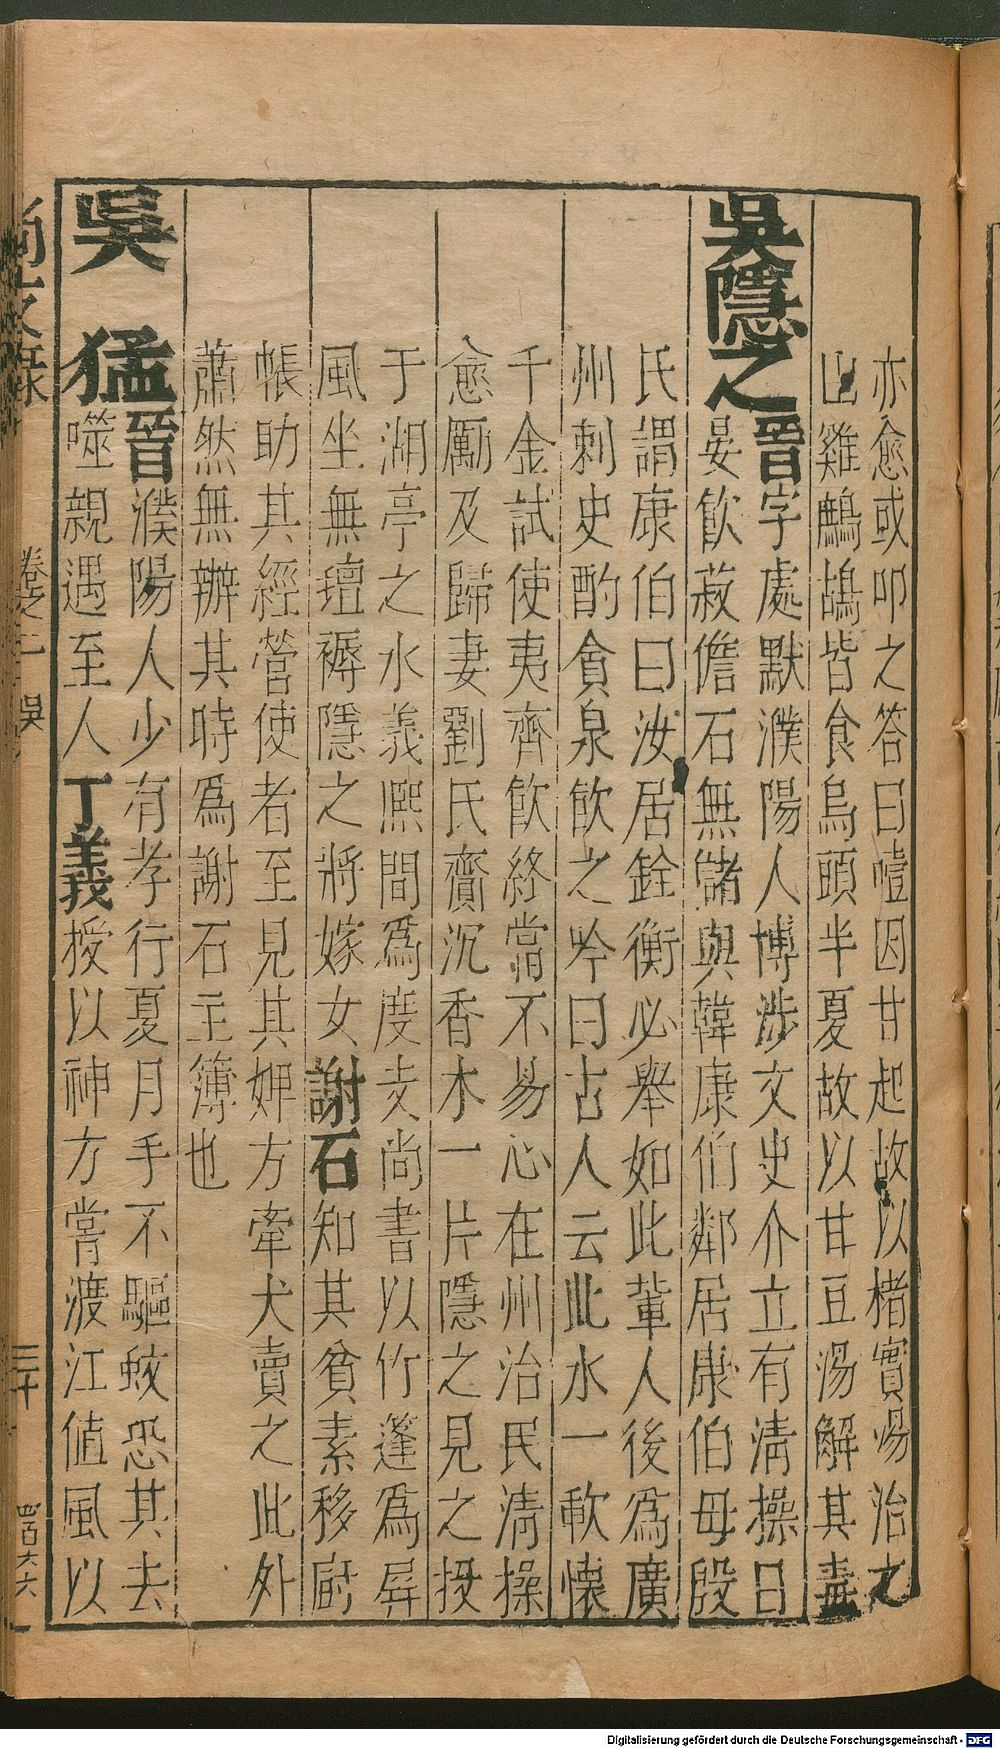 亦愈或叩之答曰噎因甘起故以楮實湯治之
山雞鷓鴣皆食烏頭半夏故以甘豆湯解其毒
吳隱之晉字處默濮陽人博涉文史介立有清操日
晏飲菽儋石無儲與韓康伯鄰居康伯母殷
氏謂康伯曰汝居銓衡必舉如此輩人後爲廣
州刺史酌貪泉飲之吟曰古人云此水一軟懷
千金試使夷齊飲終當不易心在州治民清操
愈厲及歸妻劉氏齎沉香木一片隱之見之投
于湖亭之水義熈間爲度支尚書以竹蓬爲屏
風坐無氊褥隱之將嫁女謝石知其貧素移廚
帳助其經營使者至見其婢方牽犬賣之此外
蕭然無辦其時爲謝石主簿也
吳猛晉濮陽人少有孝行夏月手不驅蚊恐其去
噬親遇至人丁義授以神方嘗渡江值風以
尚友錄 卷之二 吳 三十 四百六六
Digitalisierung gefördert durch die Deutsche Forschungsgemeinschaft - DFG